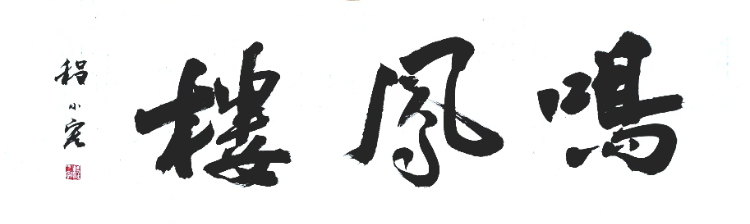 鳴鳳樓
程小宏